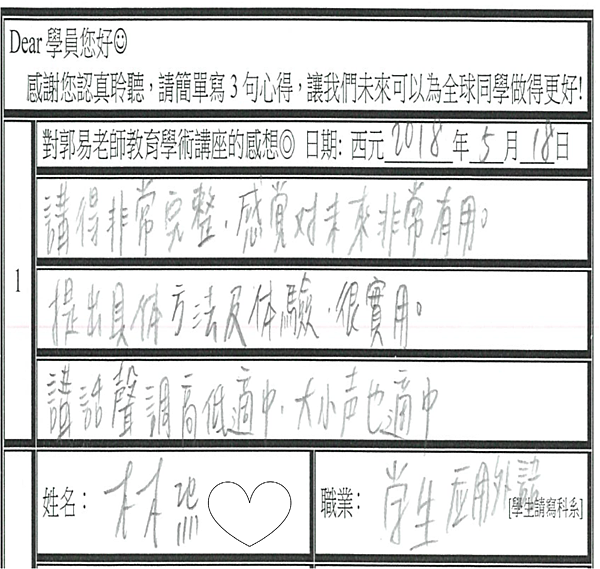 Dear 學員您好☺
感謝您認真聆聽，請簡單寫 3 句心得，讓我們未來可以為全球同學做得更好!
對郭易老師教育學術講座的感想◎ 日期: 西元 2018 年 5 月 18 日
1
講得非常完整，感覚对未來非常有用。
提出具体方法及体驗，很實用。
講話聲調高低適中，大小声也適中
姓名： 林熙
職業： 学生 应用外語 [學生請寫科系]